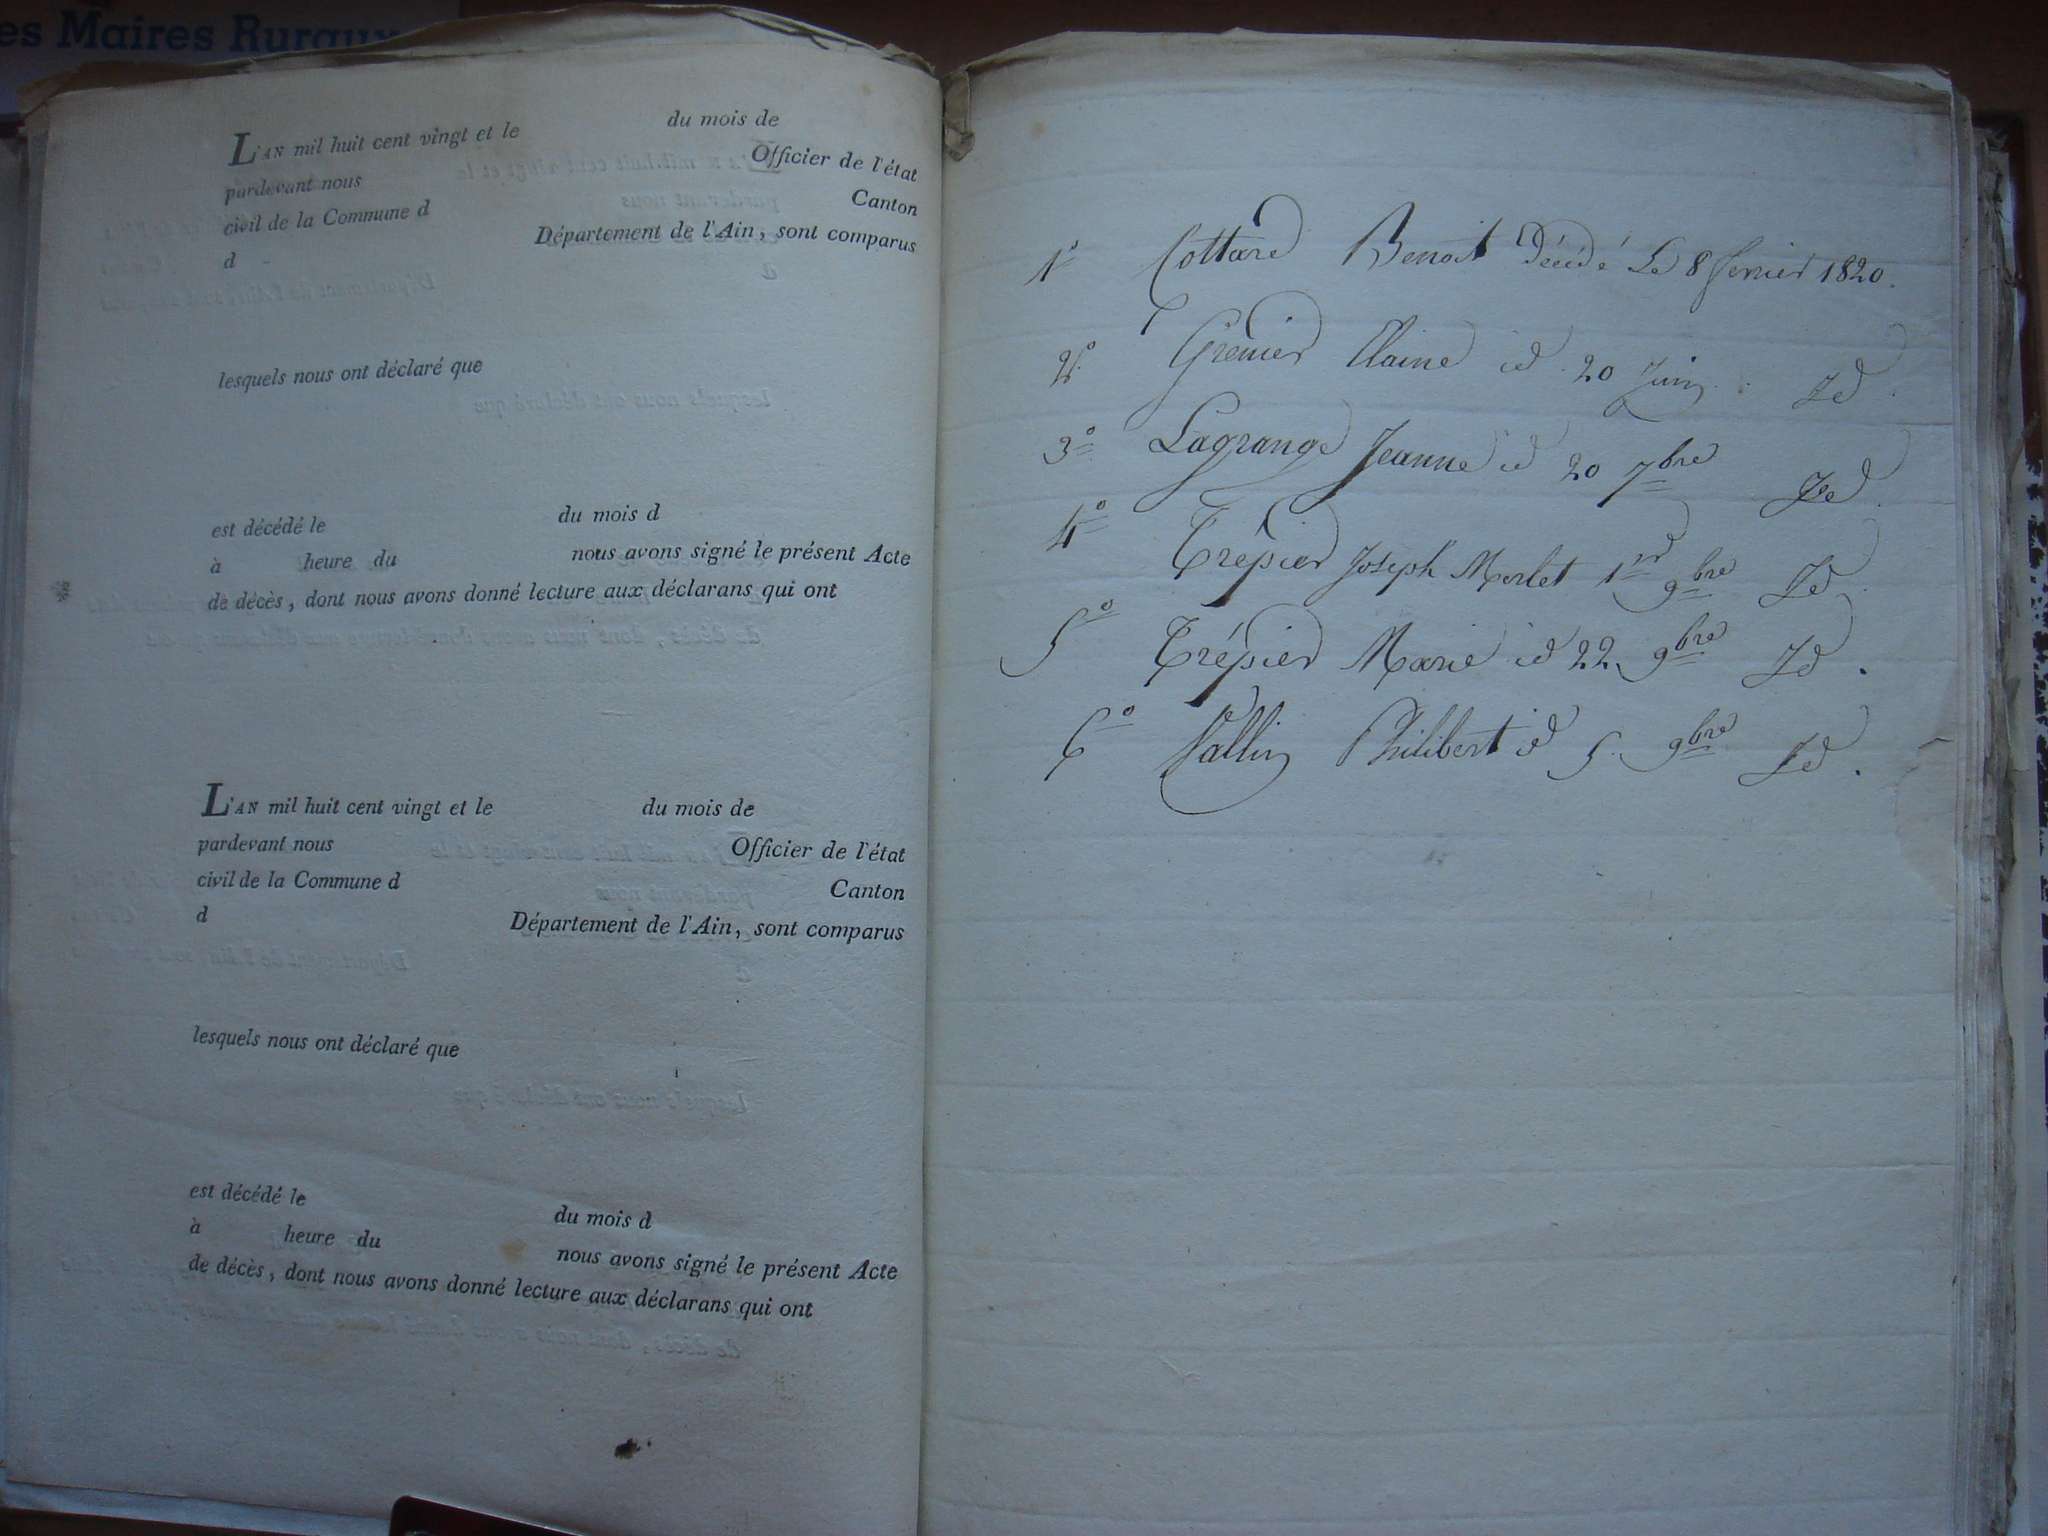 es Maires Ruraux
L'AN mil huit cent vingt et le du mois de
pardevant nous Officier de l'état
civil de la Commune d Canton
d Département de l'Ain, sont comparus
lesquels nous ont déclaré que
est décédé le du mois d
à heure du nous avons signé le présent Acte
de décès, dont nous avons donné lecture aux déclarans qui ont
L'AN mil huit cent vingt et le du mois de
pardevant nous Officier de l'état
civil de la Commune d Canton
d Département de l'Ain, sont comparus
lesquels nous ont déclaré que
est décédé le du mois d
à heure du nous avons signé le présent Acte
de décès, dont nous avons donné lecture aux déclarans qui ont
1° Cottard Benoit Décédé Le 8 fevrier 1820.
2° Grenier Claine id 20 Juin Id.
3° Lagrange Jeanne id 20 7bre Id.
4° Trépier Joseph Merlet 1er 9bre Id.
5° Trépier Marie id 22 9bre Id.
6° Vallin Philibert id 5 9bre Id.